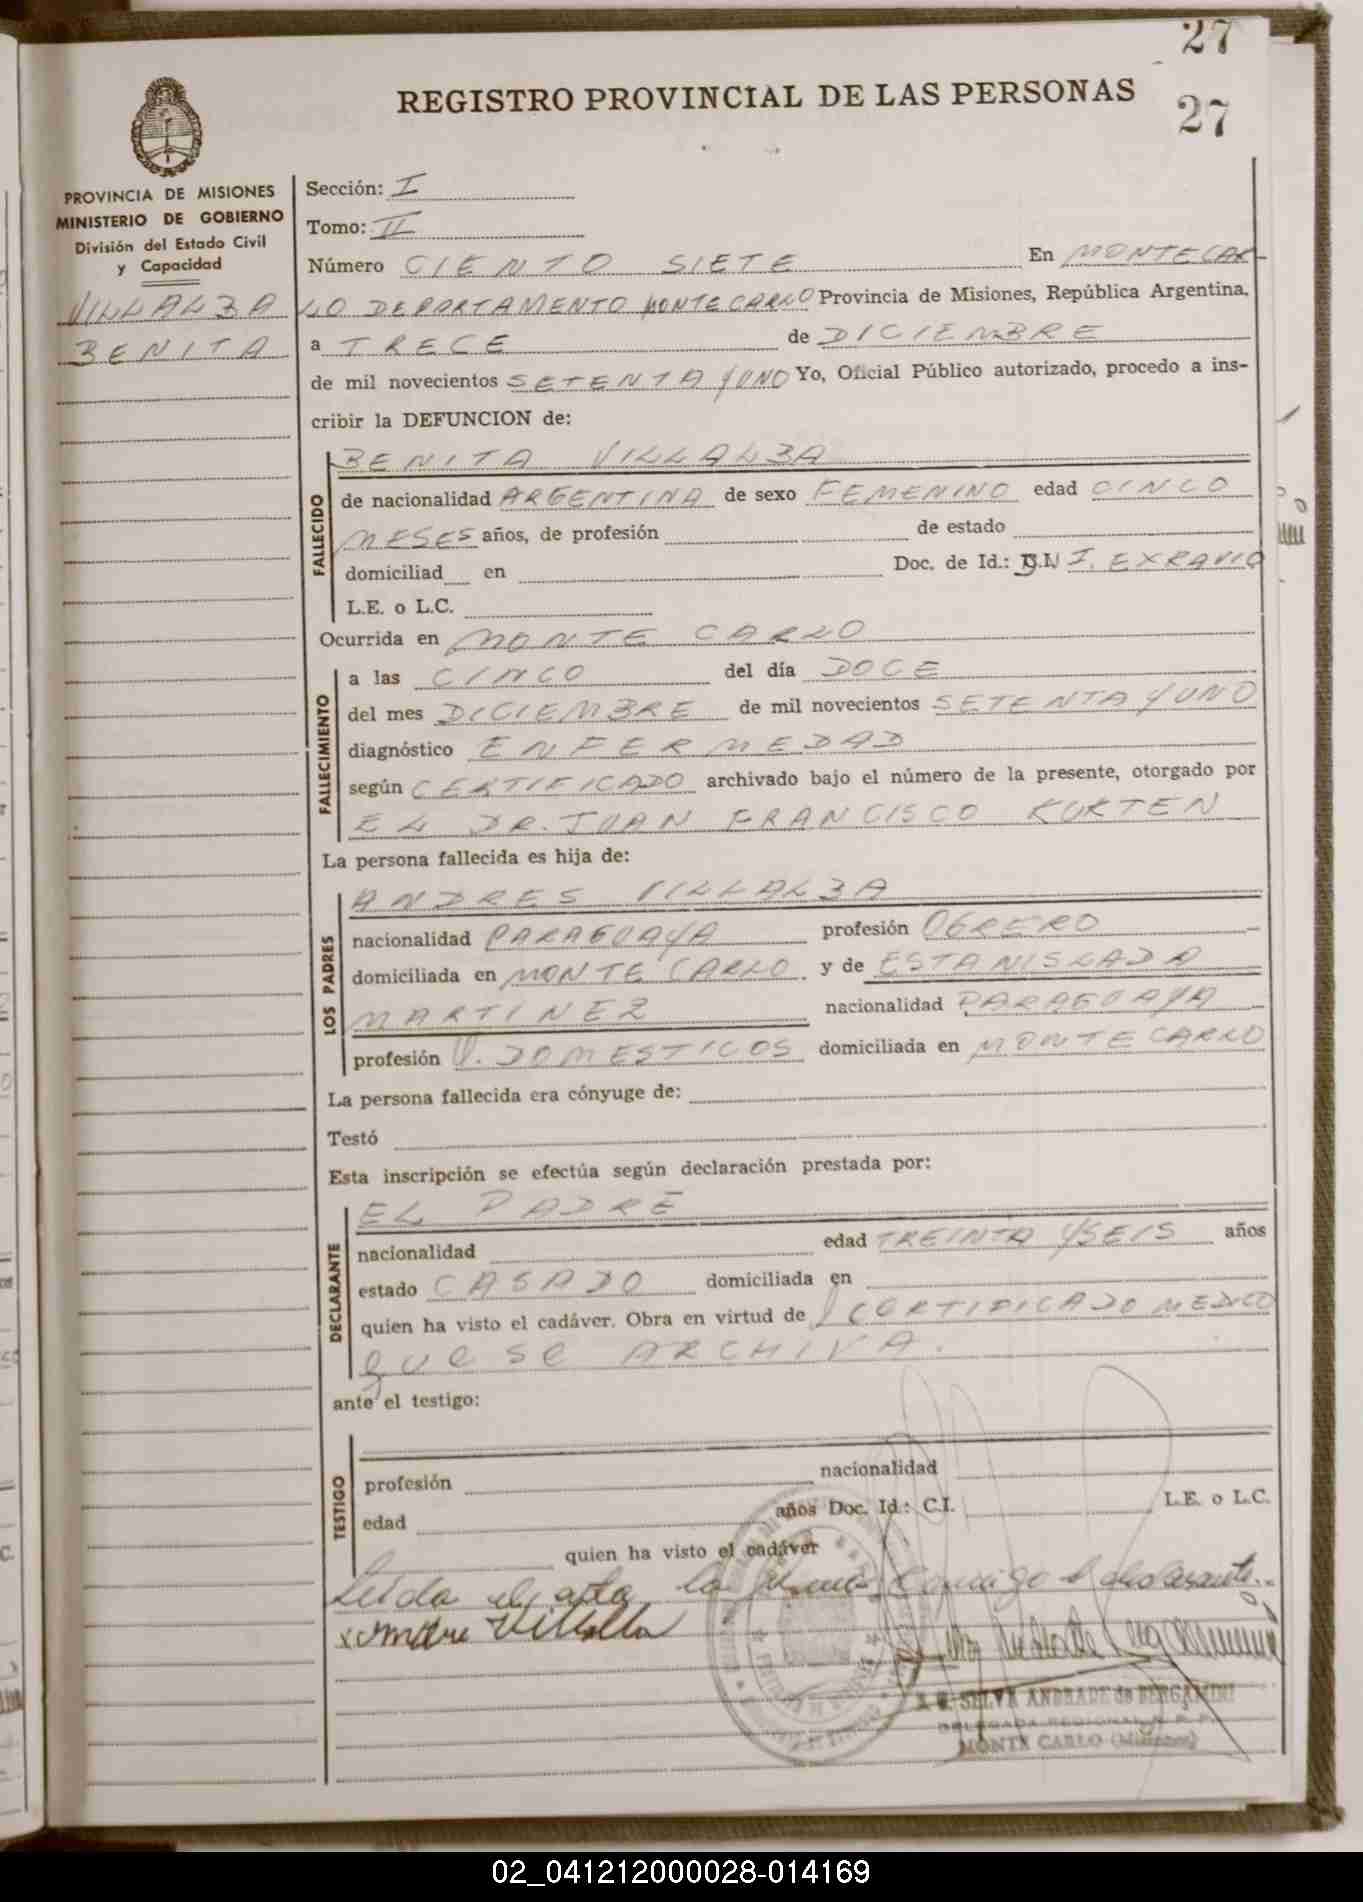 27
REGISTRO PROVINCIAL DE LAS PERSONAS
27
PROVINCIA DE MISIONES
MINISTERIO DE GOBIERNO
División del Estado Civil
y Capacidad
VILLALBA
BENITA
Sección: I
Tomo: II
Número CIENTO SIETE En MONTECAR-
LO DEPARTAMENTO MONTECARLO Provincia de Misiones, República Argentina,
a TRECE de DICIEMBRE
de mil novecientos SETENTA Y UNO Yo, Oficial Público autorizado, procedo a ins-
cribir la DEFUNCION de:
FALLECIDO
BENITA VILLALBA
de nacionalidad ARGENTINA de sexo FEMENINO edad CINCO
MESES años, de profesión de estado
domiciliad en Doc. de Id.: D.N.I. EXRAVIO
L.E. o L.C.
Ocurrida en MONTE CARLO
FALLECIMIENTO
a las CINCO del día DOCE
del mes DICIEMBRE de mil novecientos SETENTA Y UNO
diagnóstico ENFERMEDAD
según CERTIFICADO archivado bajo el número de la presente, otorgado por
EL DR. JUAN FRANCISCO KURTEN
La persona fallecida es hija de:
LOS PADRES
ANDRES VILLALBA
nacionalidad PARAGUAYA profesión OBRERO
domiciliada en MONTE CARLO. y de ESTANISLADA
MARTINEZ nacionalidad PARAGUAYA
profesión Q. DOMESTICOS domiciliada en MONTE CARLO
La persona fallecida era cónyuge de:
Testó
Esta inscripción se efectúa según declaración prestada por:
DECLARANTE
EL PADRE
nacionalidad edad TREINTA Y SEIS años
estado CASADO domiciliada en
quien ha visto el cadáver. Obra en virtud de CERTIFICADO MEDICO
QUE SE ARCHIVA.
ante el testigo:
TESTIGO
profesión nacionalidad
edad años Doc. Id.: C.I. L.E. o L.C.
quien ha visto el cadáver
Leida el acta la firma conmigo el declarante.
x Andre Villalba
SELVA ANDRADE de BERGAMINI
DELEGADA REGIONAL R. P.
MONTE CARLO (Misiones)
02_041212000028-014169